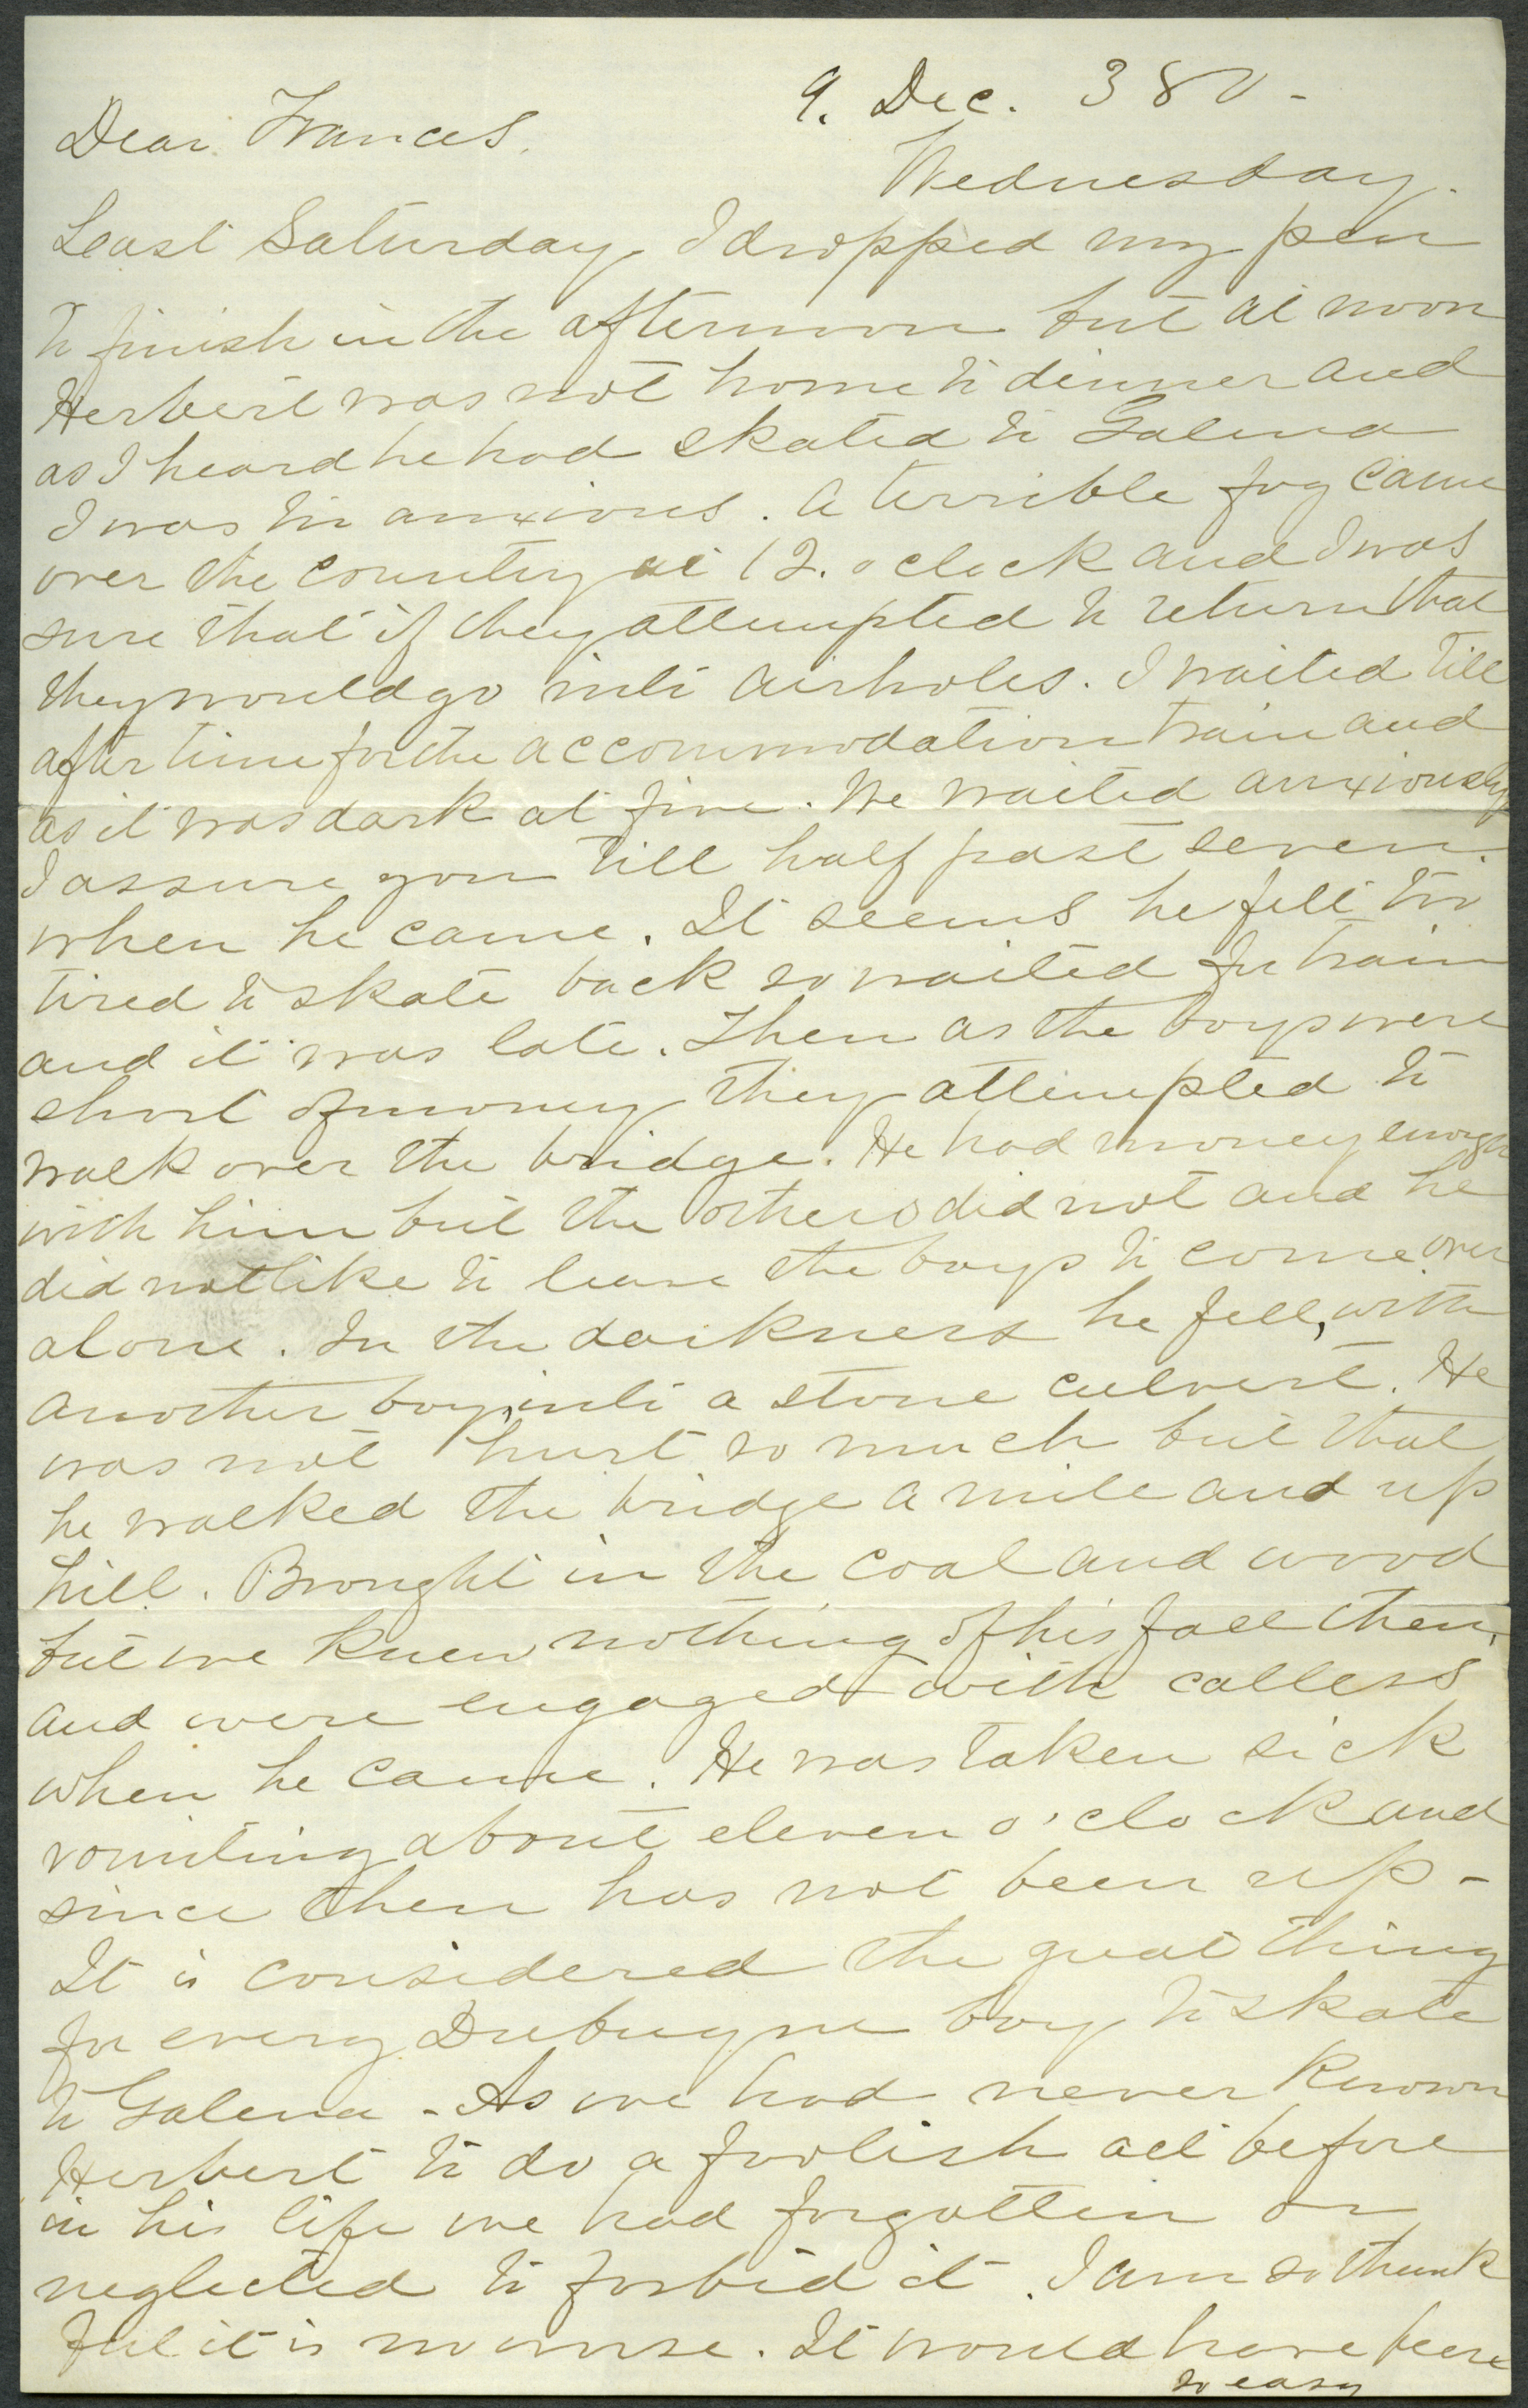 9. Dec. 380-
Dear Frances.
Wednesday.
Least Saturday, I dropped my pen
to finish in the afternoon but at noon
Herbert was not home to dinner and
as I heard he had skated to Galena
I was too anxious. A terrible fog came
over the country at 12. oclock and I was
sure that if they attempted to return that
they would go into airholes. I waited till
after time for the accommodation train and
as it was dark at five. We waited anxiously
I assure you till half past seven.
when he came. It seems he felt too
tired to skate back so waited for train
and it was late. Then as the boys were
short of money they attempted to
walk over the bridge. He had money enough
with him but the others did not and he
did not like to leave the boys to come over
alone. In the darkness he fell, with
another boy, into a stone culvert. He
was not hurt so much but that
he walked the bridge a mile and up
hill. Brought in the coal and wood
but we knew nothing of his fall then,
and were engaged with callers
when he came. He was taken sick
vomiting about eleven o'clock and
since then has not been up-
It is considered the great thing
for every Dubuque boy to skate
to Galena - As we had never known
Herbert to do a foolish act before
in his life we had forgotten or
neglected to forbid it. I am so thank
ful it is no worse. It would have been
so easy